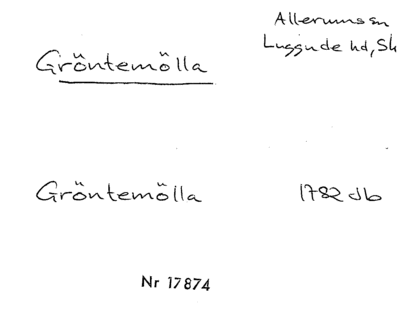 Allerums sn
Luggude hd, Sk
Gröntemölla
Gröntemölla 1782 db
Nr 17874